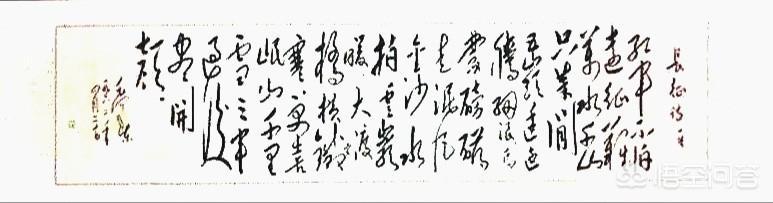 长征诗一首
红军不怕
远征难
万水千山
只等闲
五岭逶迤
腾细浪乌
蒙磅礴
走泥丸
金沙水
拍云崖
暖大渡
桥横铁索
寒更喜
岷山千里
雪三军
过后
尽开
颜
毛泽东
悟空问答